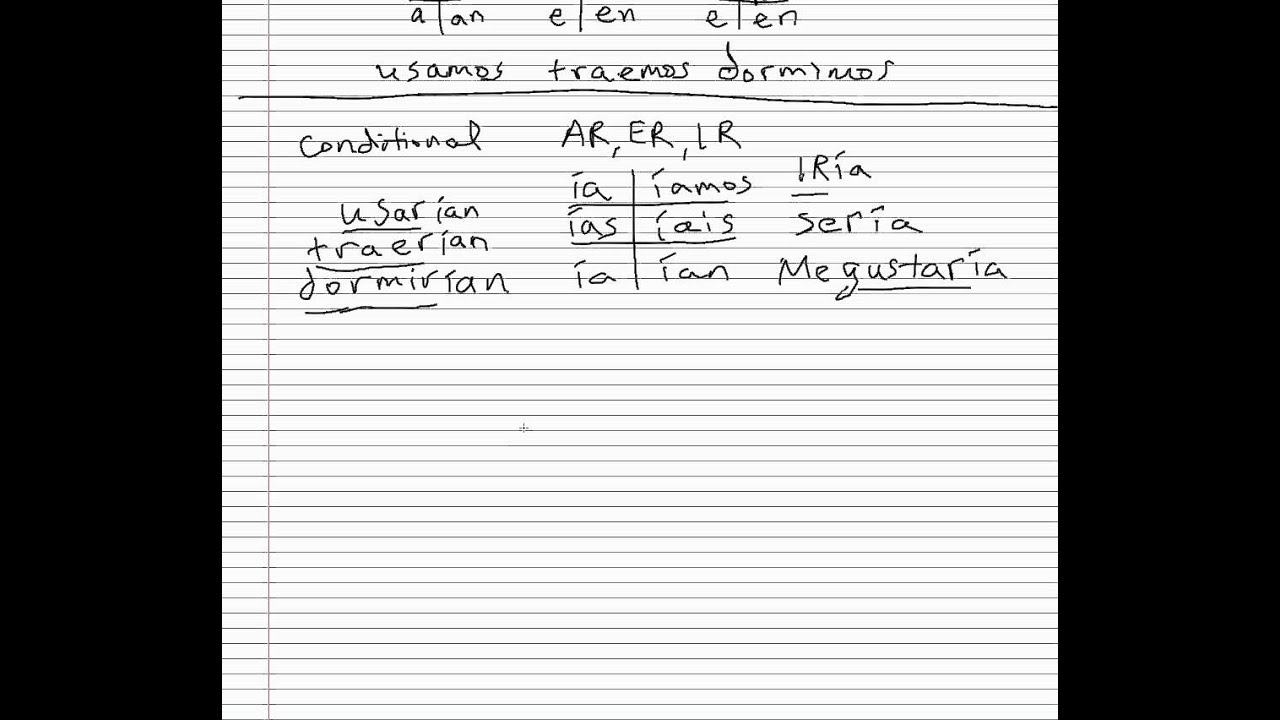 a an e en e en
usamos traemos dormimos
Conditional AR, ER, IR
ía íamos IRía
usarían ías íais sería
traerían
dormirían ía ían Me gustaría